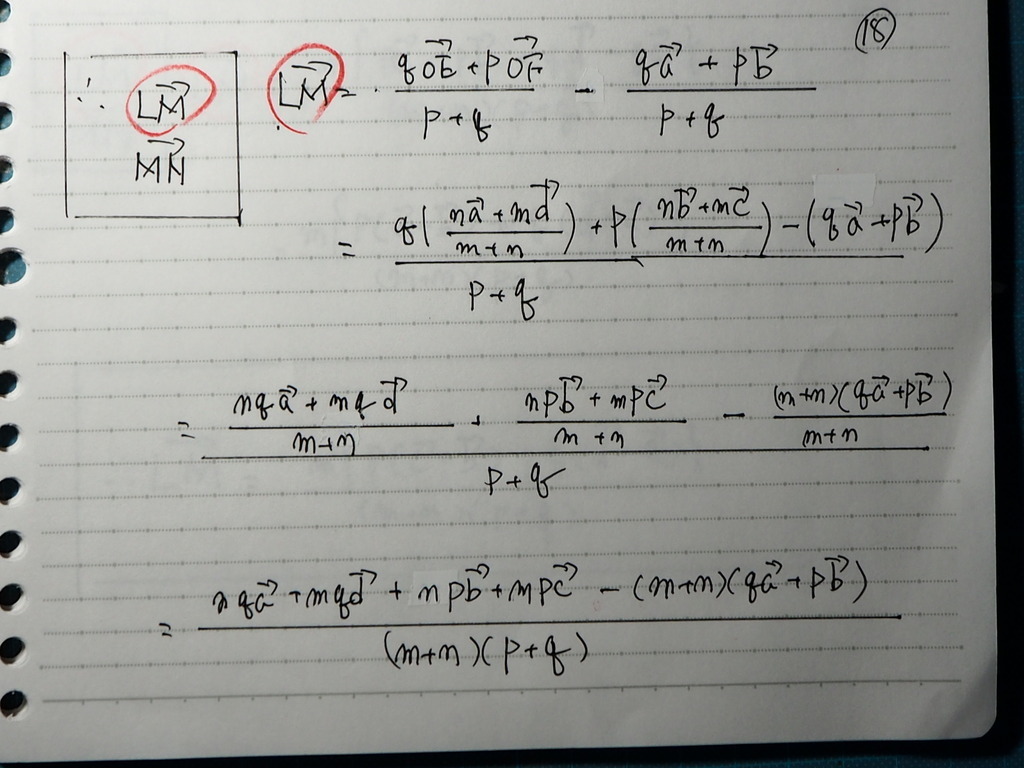 ⑱
∴ \overrightarrow{LM}
\overrightarrow{MN}
\overrightarrow{LM} = \frac{q\overrightarrow{OE} + p\overrightarrow{OF}}{p+q} - \frac{q\vec{a} + p\vec{b}}{p+q}
= \frac{q(\frac{n\vec{a}+m\vec{d}}{m+n}) + p(\frac{n\vec{b}+m\vec{c}}{m+n}) - (q\vec{a}+p\vec{b})}{p+q}
= \frac{\frac{nq\vec{a}+mq\vec{d}}{m+n} + \frac{np\vec{b}+mp\vec{c}}{m+n} - \frac{(m+n)(q\vec{a}+p\vec{b})}{m+n}}{p+q}
= \frac{nq\vec{a}+mq\vec{d}+np\vec{b}+mp\vec{c}-(m+n)(q\vec{a}+p\vec{b})}{(m+n)(p+q)}